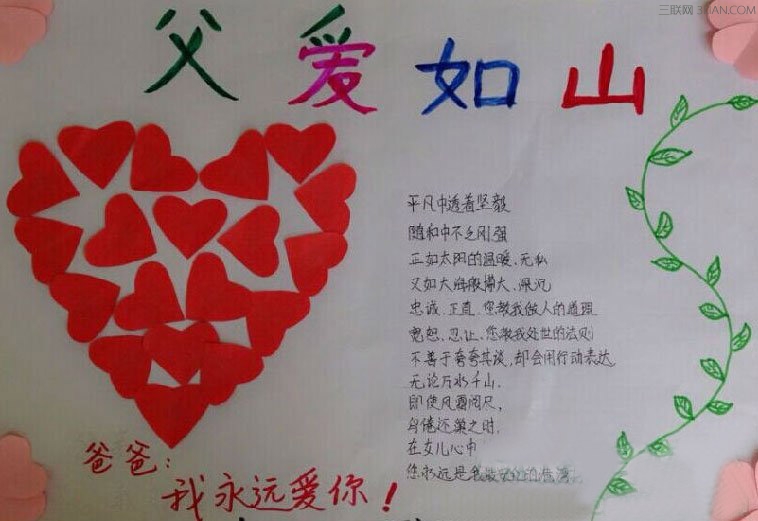 三联网 3LIAN.COM
父爱如山
平凡中透着坚毅
随和中不乏刚强
正如太阳的温暖、无私
又如大海般博大、深沉
忠诚、正直、您教我做人的道理
宽恕、忍让、您教我处世的法则
不善于夸夸其谈,却会用行动表达
无论万水千山,
即使风霜
鸟倦还巢之时,
在女儿心中
您永远是我最
爸爸:
我永远爱你!